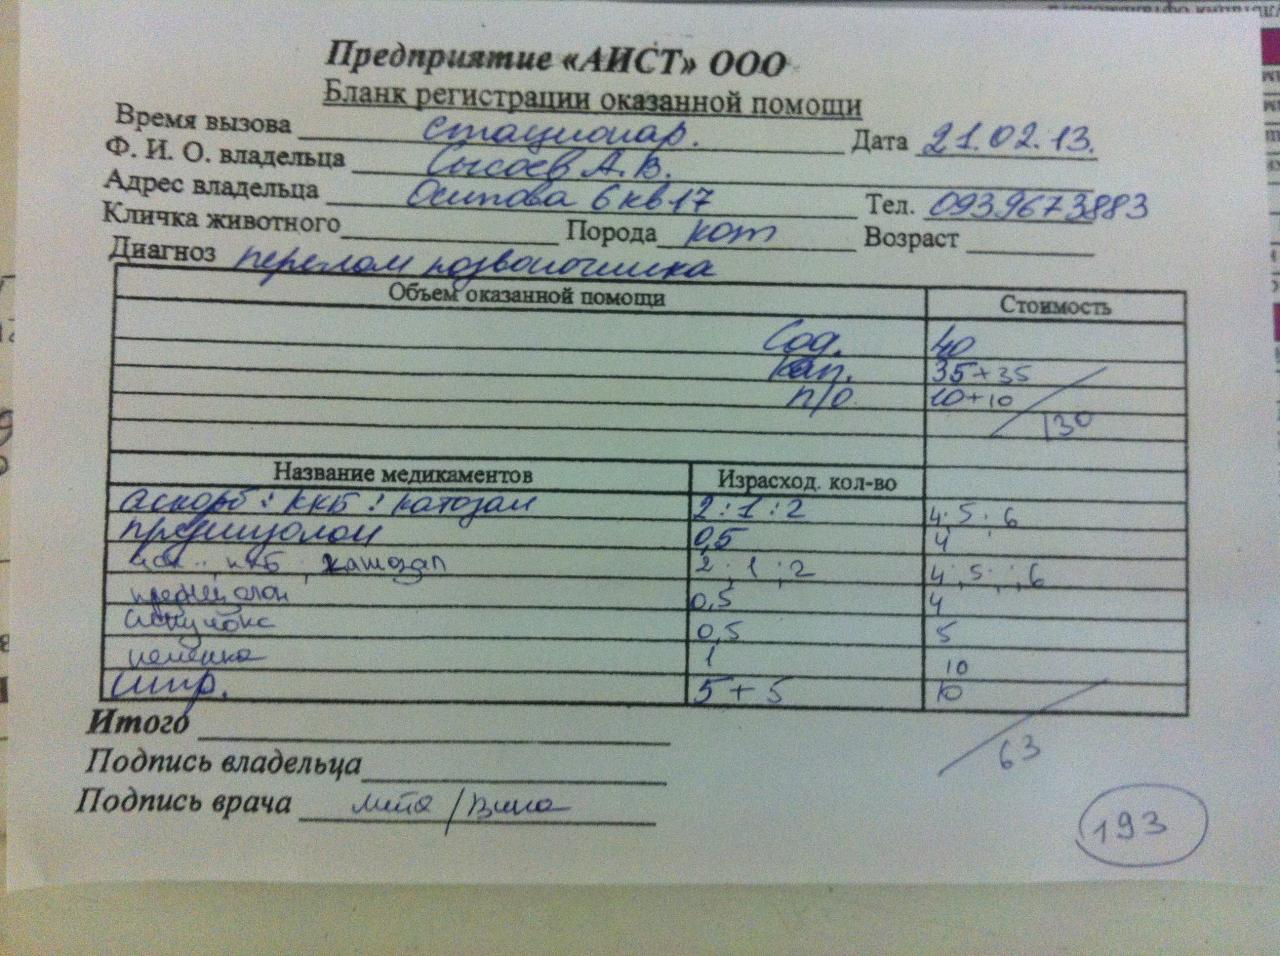 Предприятие «АИСТ» ООО
Бланк регистрации оказанной помощи
Время вызова стационар. Дата 21.02.13.
Ф. И. О. владельца Сысоев А. В.
Адрес владельца Осипова 6 кв 17 Тел. 0939673883
Кличка животного Порода кот Возраст
Диагноз перелом позвоночника
Объем оказанной помощи Стоимость
Сод. 40
кап. 35+35
п/о 10+10
130
Название медикаментов Израсход. кол-во
аскорб : ККБ : катозал 2 : 1 : 2 4; 5; 6
преднизолон 0,5 4
ккб, катозал 2; 1; 2 4; 5; 6
преднизолон 0,5 4
0,5 5
пеленка 1 10
шпр. 5+5 10
Итого 63
Подпись владельца
Подпись врача
193